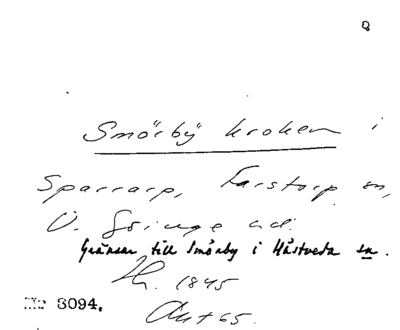 Smörby kroken i
Sparrarp, Farstorp sn,
Ö. Göinge hd.
Gränsar till Smörby i Hästveda sn.
1845
No 8094.
Akt 65.